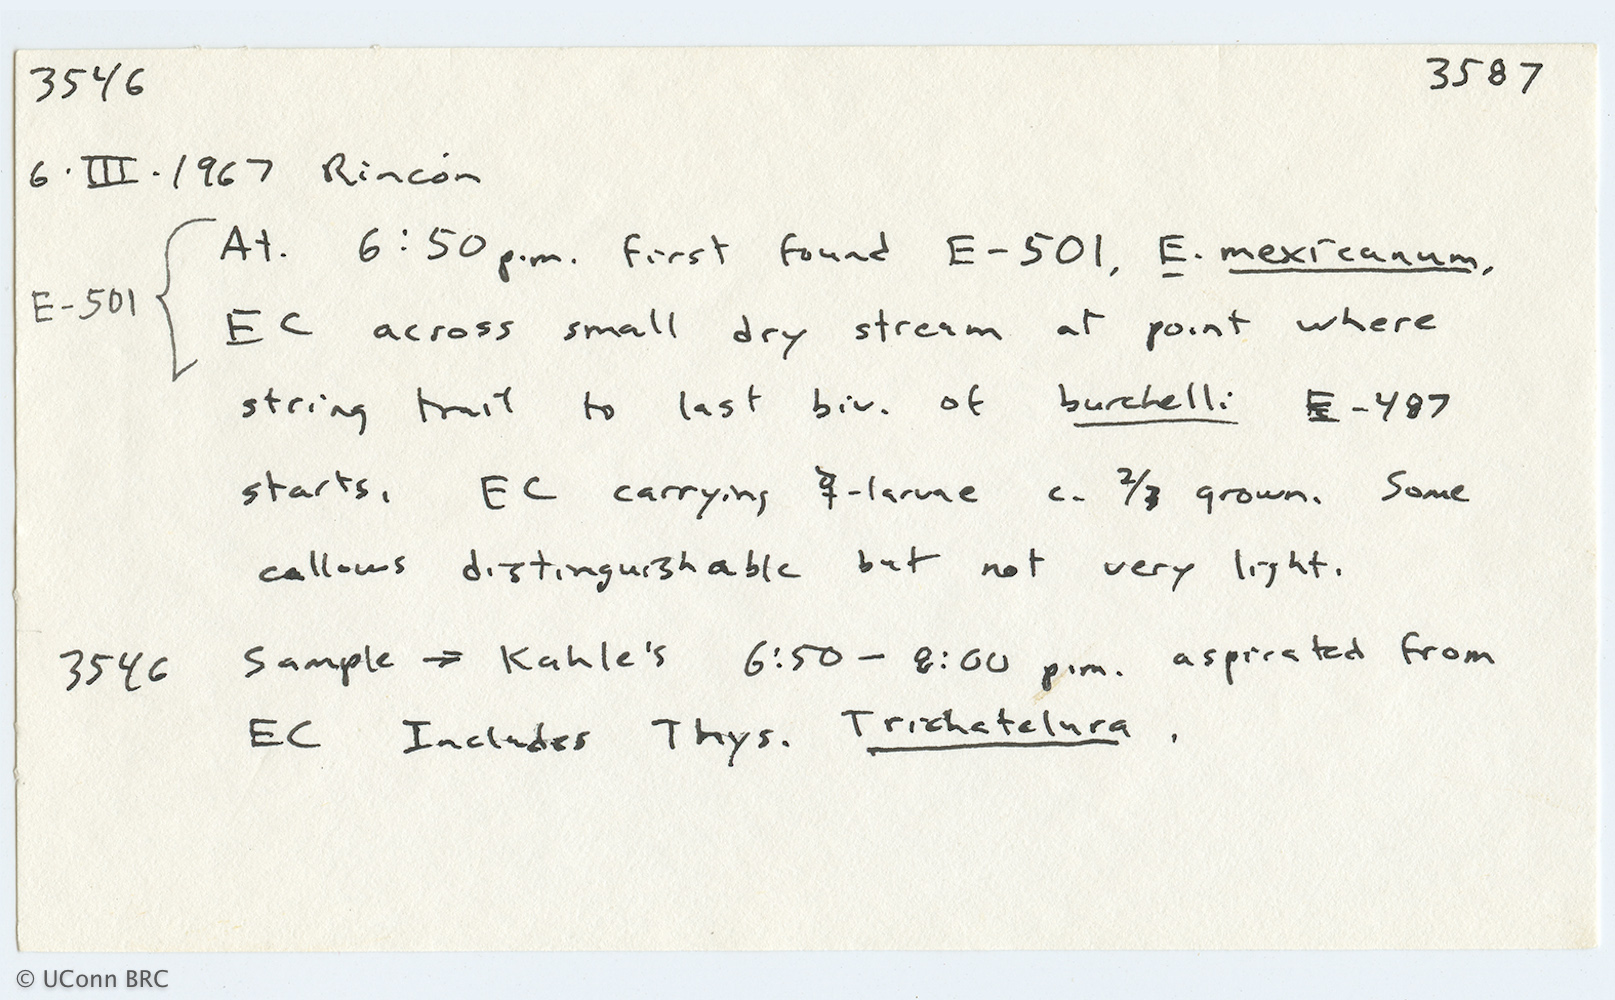 3546 3587
6·III·1967 Rincón
At. 6:50 p.m. first found E-501, E. mexicanum,
E-501
EC across small dry stream at point where
string trail to last biv. of burchelli E-487
starts. EC carrying ☿-larvae c. 2/3 grown. Some
callows distinguishable but not very light.
3546 Sample → Kahle's 6:50 - 8:00 p.m. aspirated from
EC Includes Thys. Trichatelura.
© UConn BRC